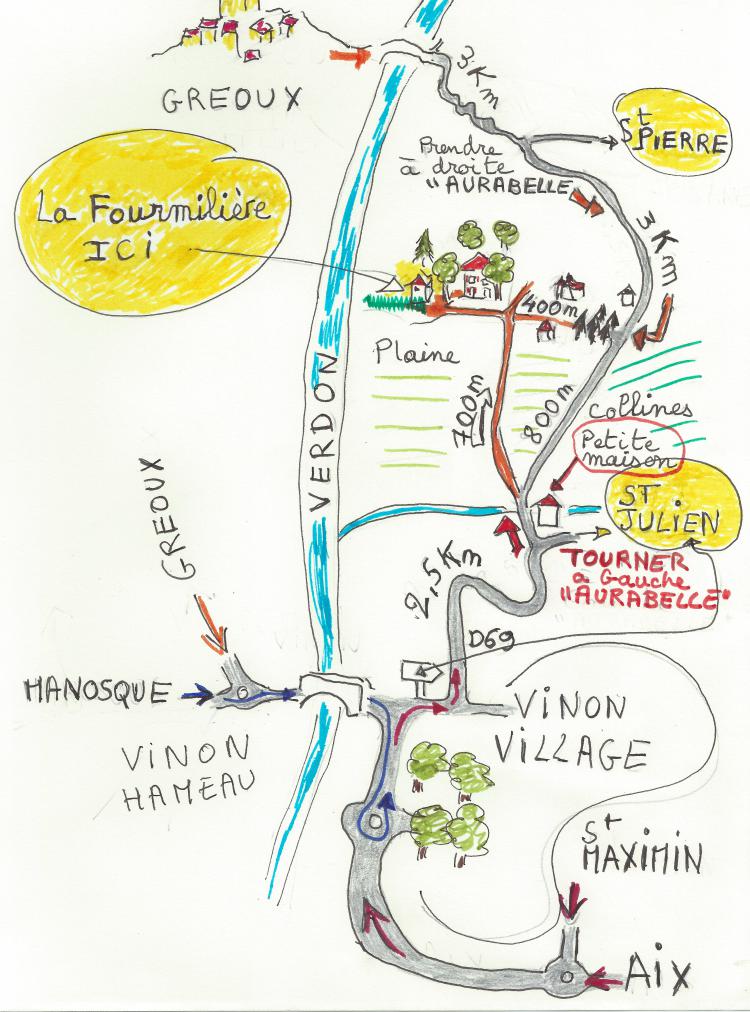 3 Km
GREOUX
St
PIERRE
Prendre
à droite
"AURABELLE
La Fourmilière
ICI
3 Km
400m
Plaine
VERDON
700m
800m
Collines
Petite
maison
ST
JULIEN
GREOUX
2,5Km
TOURNER
à Gauche
"AURABELLE"
D69
MANOSQUE
VINON
VILLAGE
VINON
HAMEAU
St
MAXIMIN
AIX